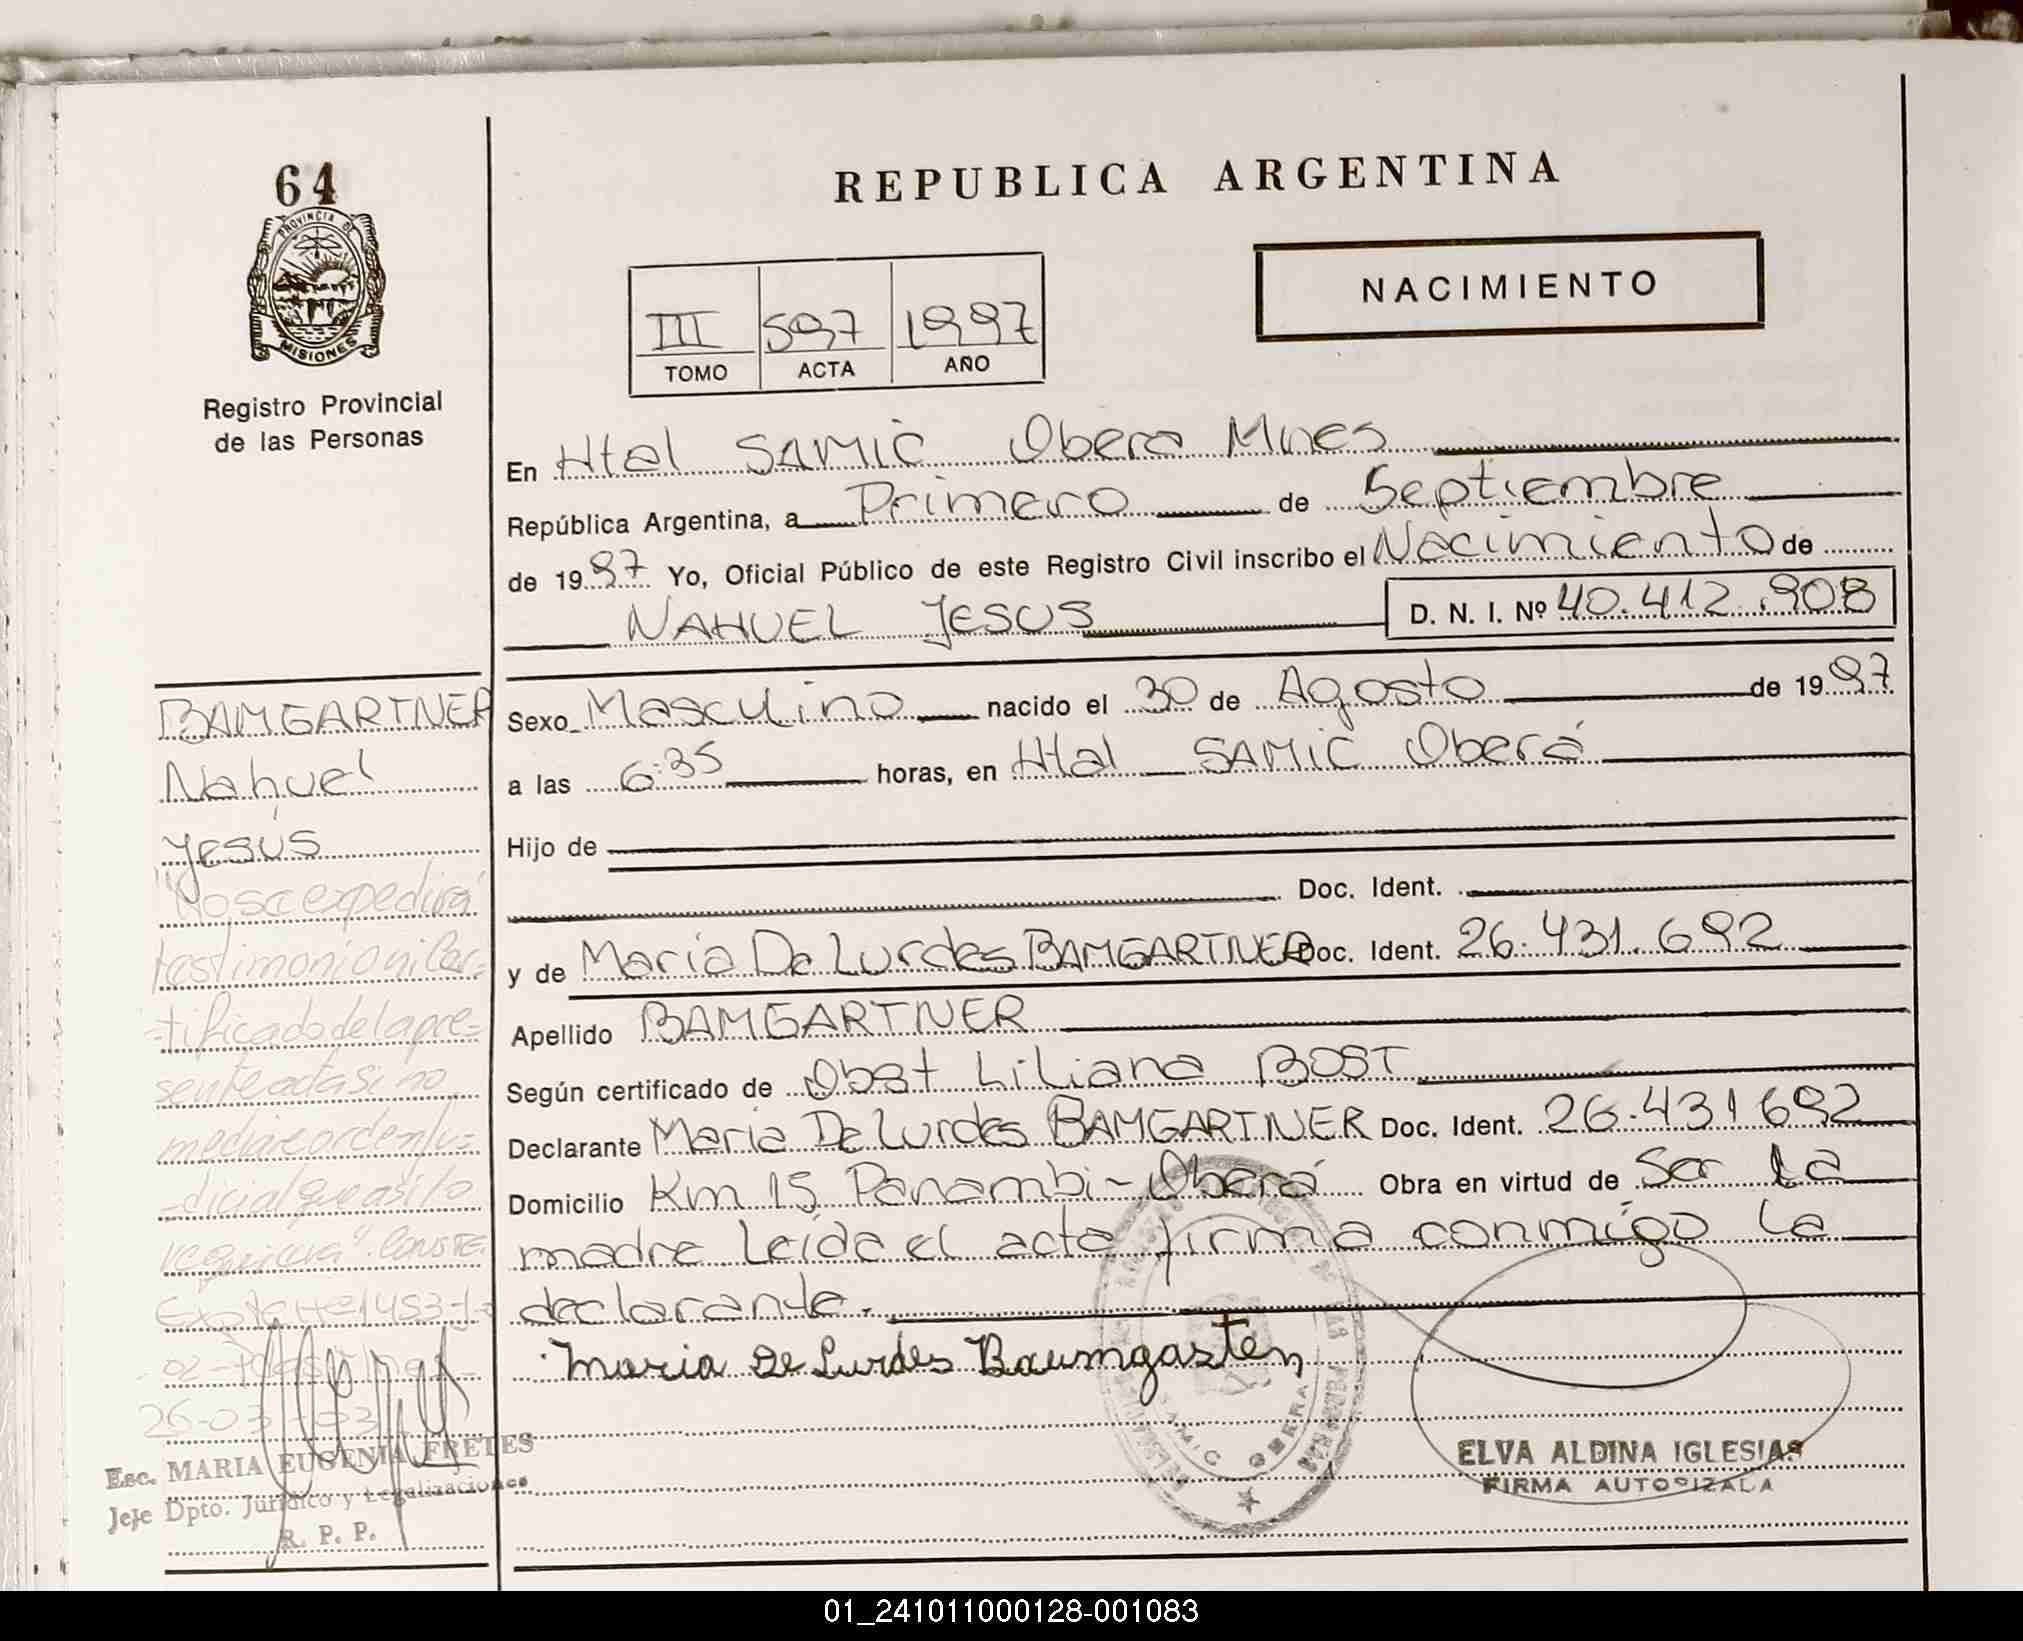 64
PROVINCIA DE
MISIONES
Registro Provincial
de las Personas
REPUBLICA ARGENTINA
NACIMIENTO
III 597 1997
TOMO ACTA AÑO
En Htal SAMIC Obera Mnes
República Argentina, a Primero de Septiembre
de 1997 Yo, Oficial Público de este Registro Civil inscribo el Nacimiento de
NAHUEL JESUS D. N. I. Nº 40.412.908
BAMGARTNER
Nahuel
Jesús
"No se expedirá
testimonio ni Cer-
-tificado de la pre-
sente acta si no
mediare orden ju-
-dicial que así lo
requiera". CONSTE.
Expte Nº 1453-
02-
26-03-03
Esc. MARIA EUGENIA FRETES
Jefe Dpto. Jurídico y Legalizaciones
R. P. P.
Sexo Masculino nacido el 30 de Agosto de 1997
a las 6:35 horas, en Htal SAMIC Oberá
Hijo de
Doc. Ident.
y de Maria De Lurdes BAMGARTNER Doc. Ident. 26.431.692
Apellido BAMGARTNER
Según certificado de Obst Liliana BOST
Declarante Maria De Lurdes BAMGARTNER Doc. Ident. 26.431692
Domicilio Km 15 Panambi - Oberá Obra en virtud de Ser La
madre Leída el acta firma conmigo la
declarante.
Maria De Lurdes Baumgarten
SAMIC OBERA
ELVA ALDINA IGLESIAS
FIRMA AUTORIZADA
01_241011000128-001083